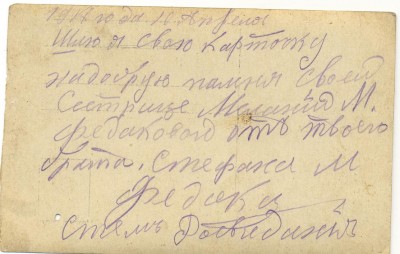 1916 года 18 Апреля
Шлю я свою карточку
на добрую памня своей
Сестрице Меланий М.
Федаковой отъ твоего
брата. Стефана М
Федака
стемъ Досвиданія